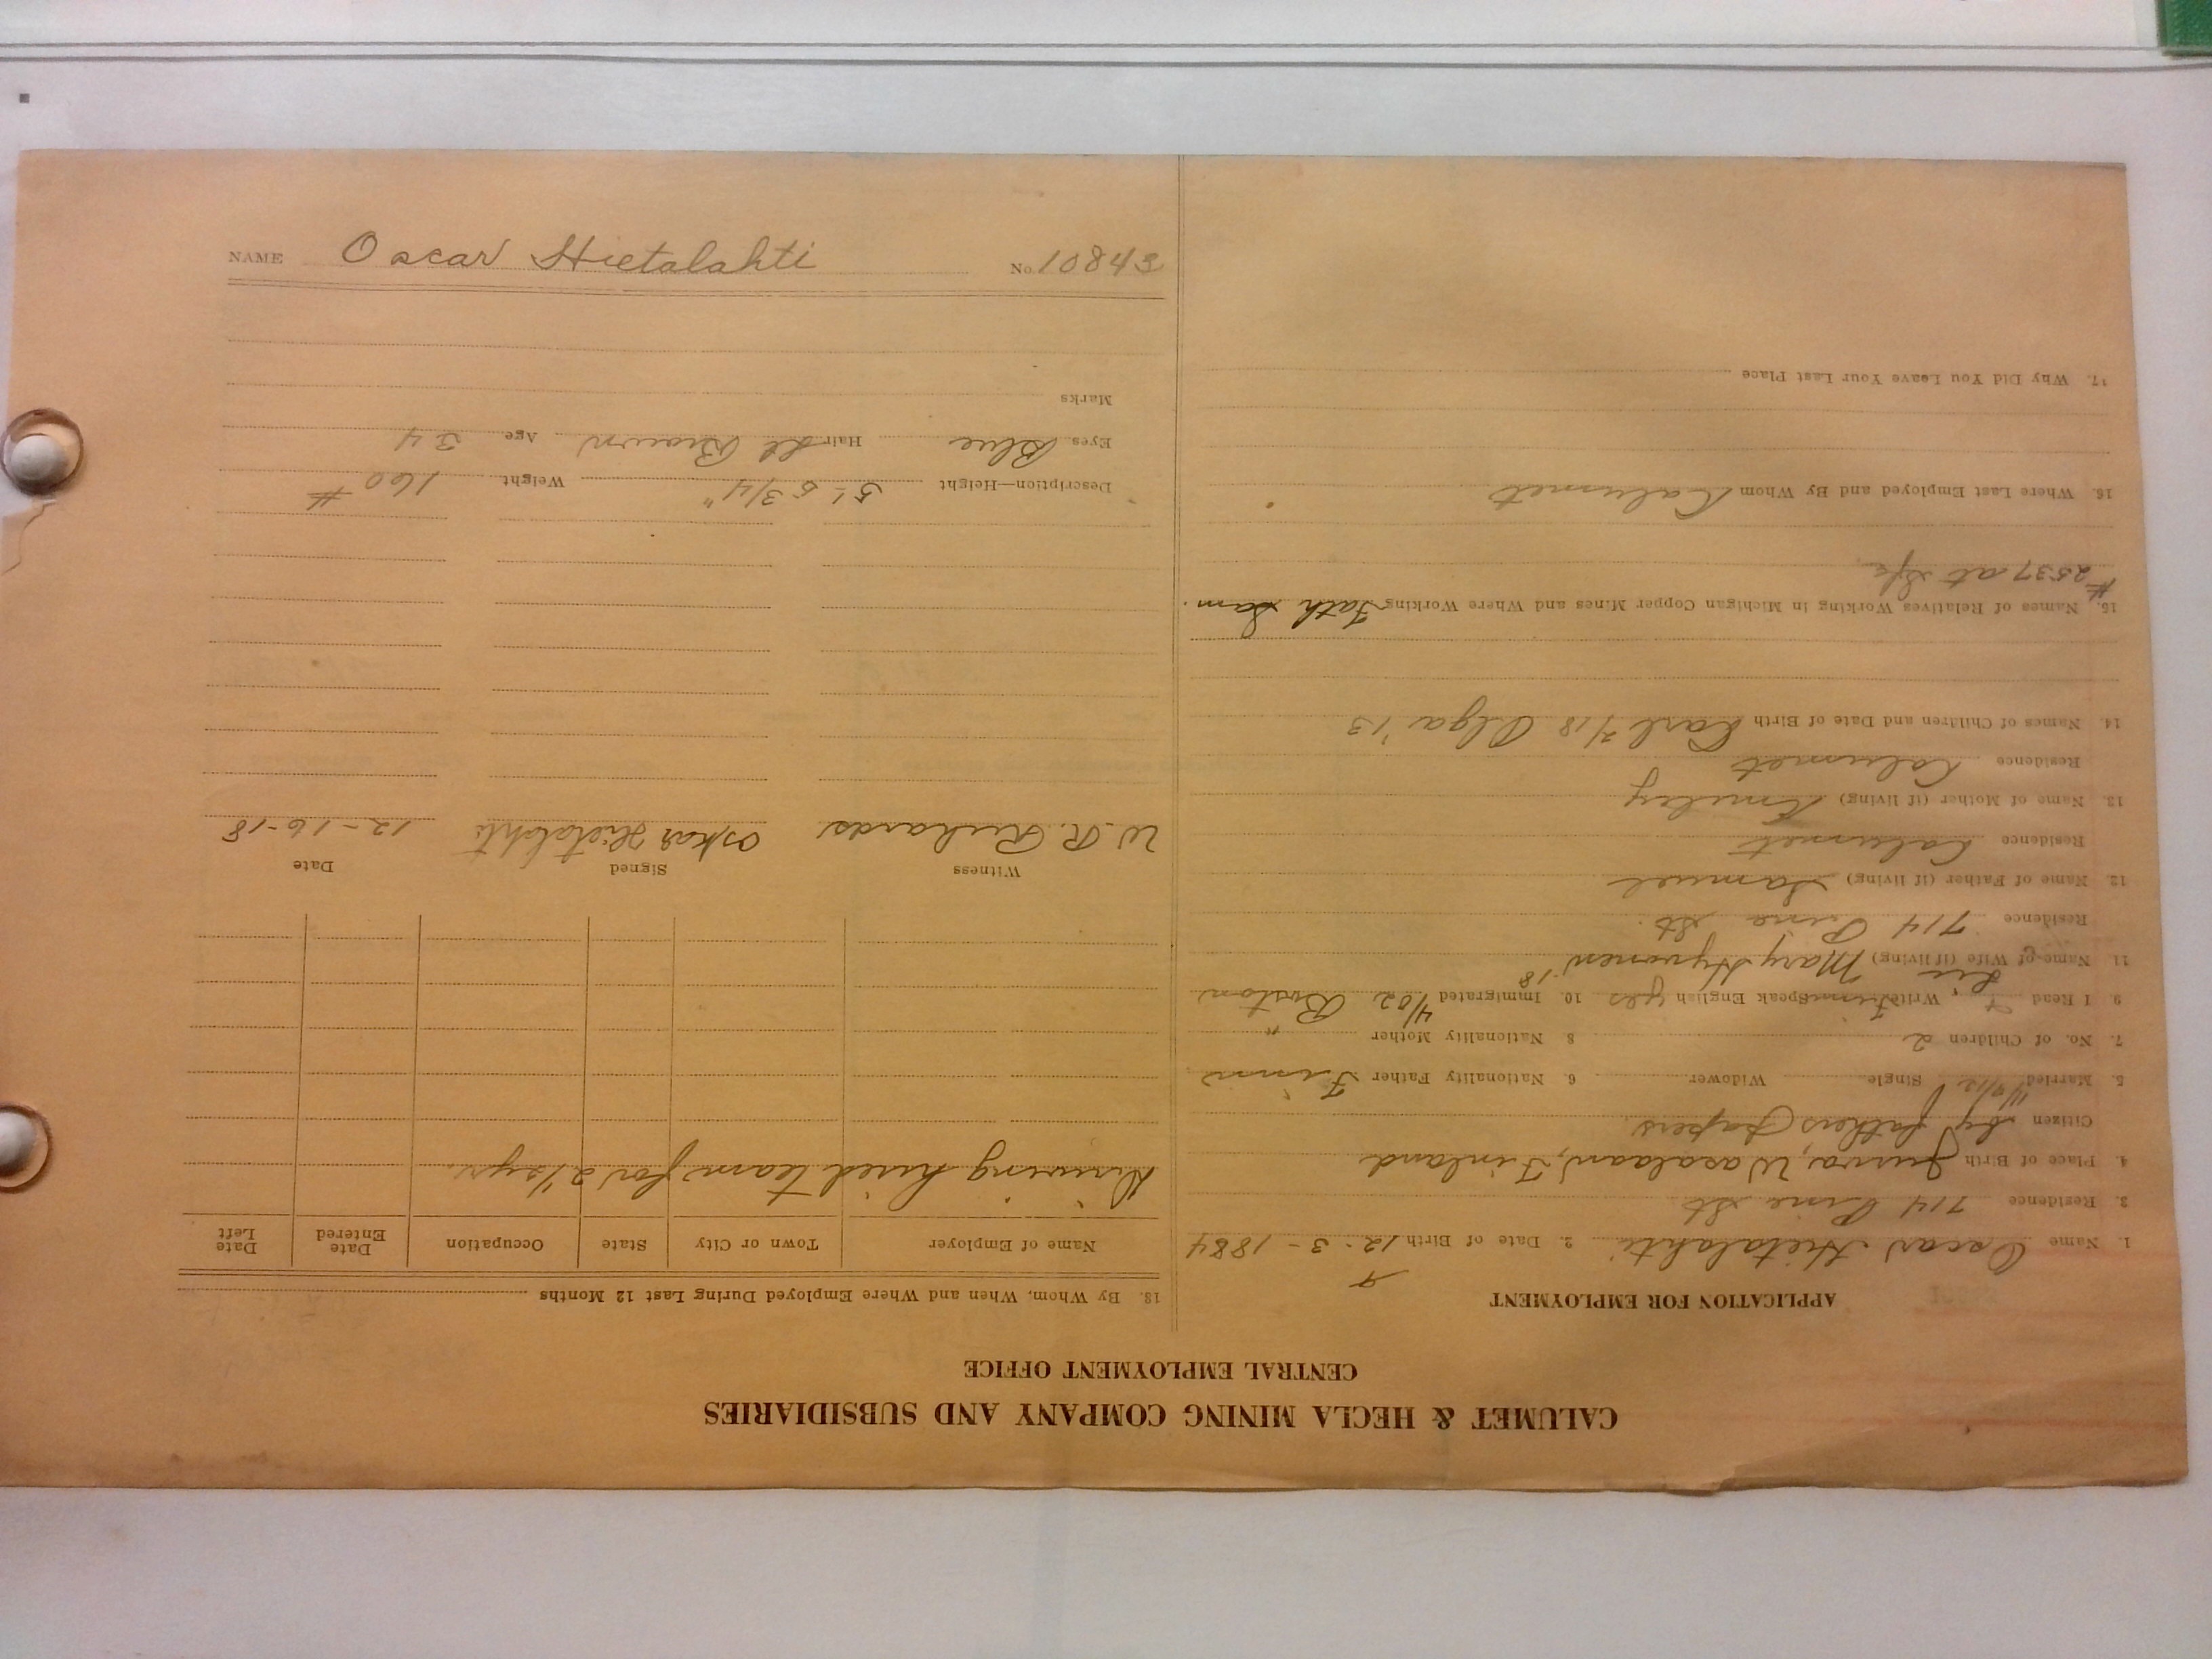 CALUMET & HECLA MINING COMPANY AND SUBSIDIARIES
CENTRAL EMPLOYMENT OFFICE
APPLICATION FOR EMPLOYMENT
1. Name Oscar Hietalahti 2. Date of Birth 12-3-1884
3. Residence 714 Pine St
4. Place of Birth Jurva, Wasalaani, Finland
Citizen by fathers papers.
5. Married 11/9/12 Single Widower 6. Nationality Father Finn
7. No. of Children 2 8 Nationality Mother "
9. I Read Write Finn Speak English yes 10. Immigrated 4/02 Boston
11. Name of Wife (if living) Mary Hyvonen '18
Residence 714 Pine St.
12. Name of Father (if living) Samuel
Residence Calumet
13. Name of Mother (if living)
Residence Calumet
14. Names of Children and Date of Birth Carl 2/18 Olga '13
15. Names of Relatives Working in Michigan Copper Mines and Where Working Fath Sam.
#2537 at
16. Where Last Employed and By Whom Calumet
17. Why Did You Leave Your Last Place
18. By Whom, When and Where Employed During Last 12 Months
Name of Employer Town or City State Occupation Date Entered Date Left
Driving hired team for 2 1/2 yr.
Witness Signed Date
W. R. Richards Oskar Hietalahti 12-16-18
Description—Height 5' 5 3/4" Weight 160 #
Eyes Blue Hair Lt Brown Age 34
Marks
NAME Oscar Hietalahti No. 10843